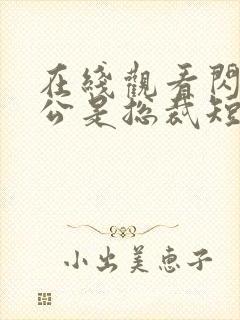 在綫觀看閃
公是總裁短
小出美恵子